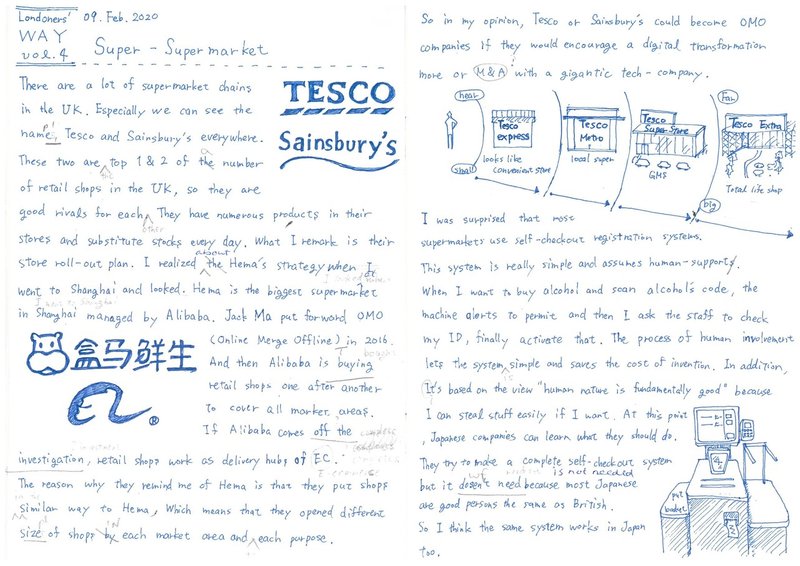 Londoners' 09. Feb. 2020
WAY
vol. 4 Super - Supermarket
There are a lot of supermarket chains
in the UK. Especially we can see the
name, Tesco and Sainsbury's everywhere.
These two are the top 1 & 2 of the number
of retail shops in the UK, so they are
good rivals for each other. They have numerous products in their
stores and substitute stocks every day. What I remark is their
store roll-out plan. I realized about the Hema's strategy when I
went to Shanghai and looked. Hema is the biggest supermarket
in Shanghai managed by Alibaba. Jack Ma put forward OMO
(Online Merge Offline) in 2016.
And then Alibaba is buying
retail shops one after another
to cover all market areas.
If Alibaba comes off the
investigation, retail shops work as delivery hubs of EC.
The reason why they remind me of Hema is that they put shops
similar way to Hema, which means that they opened different
size of shops by each market area and each purpose.
TESCO
Sainsbury's
盒马鲜生
®
So in my opinion, Tesco or Sainsbury's could become OMO
companies if they would encourage a digital transformation
more or M&A with a gigantic tech-company.
near
far
Tesco express
Tesco Metro
Tesco Super Store
Tesco Extra
looks like
convenient store
local super
GMS
Total life shop
small
big
I was surprised that most
supermarkets use self-checkout registration systems.
This system is really simple and assumes human-supports.
When I want to buy alcohol and scan alcohol's code, the
machine alerts to permit and then I ask the staff to check
my ID, finally activate that. The process of human involvement
lets the system simple and saves the cost of invention. In addition,
It's based on the view "human nature is fundamentally good" because
I can steal stuff easily if I want. At this point
, Japanese companies can learn what they should do.
They try to make a complete self-checkout system
is not needed
but it doesn't need because most Japanese
are good persons the same as British.
So I think the same system works in Japan
too.
put
basket